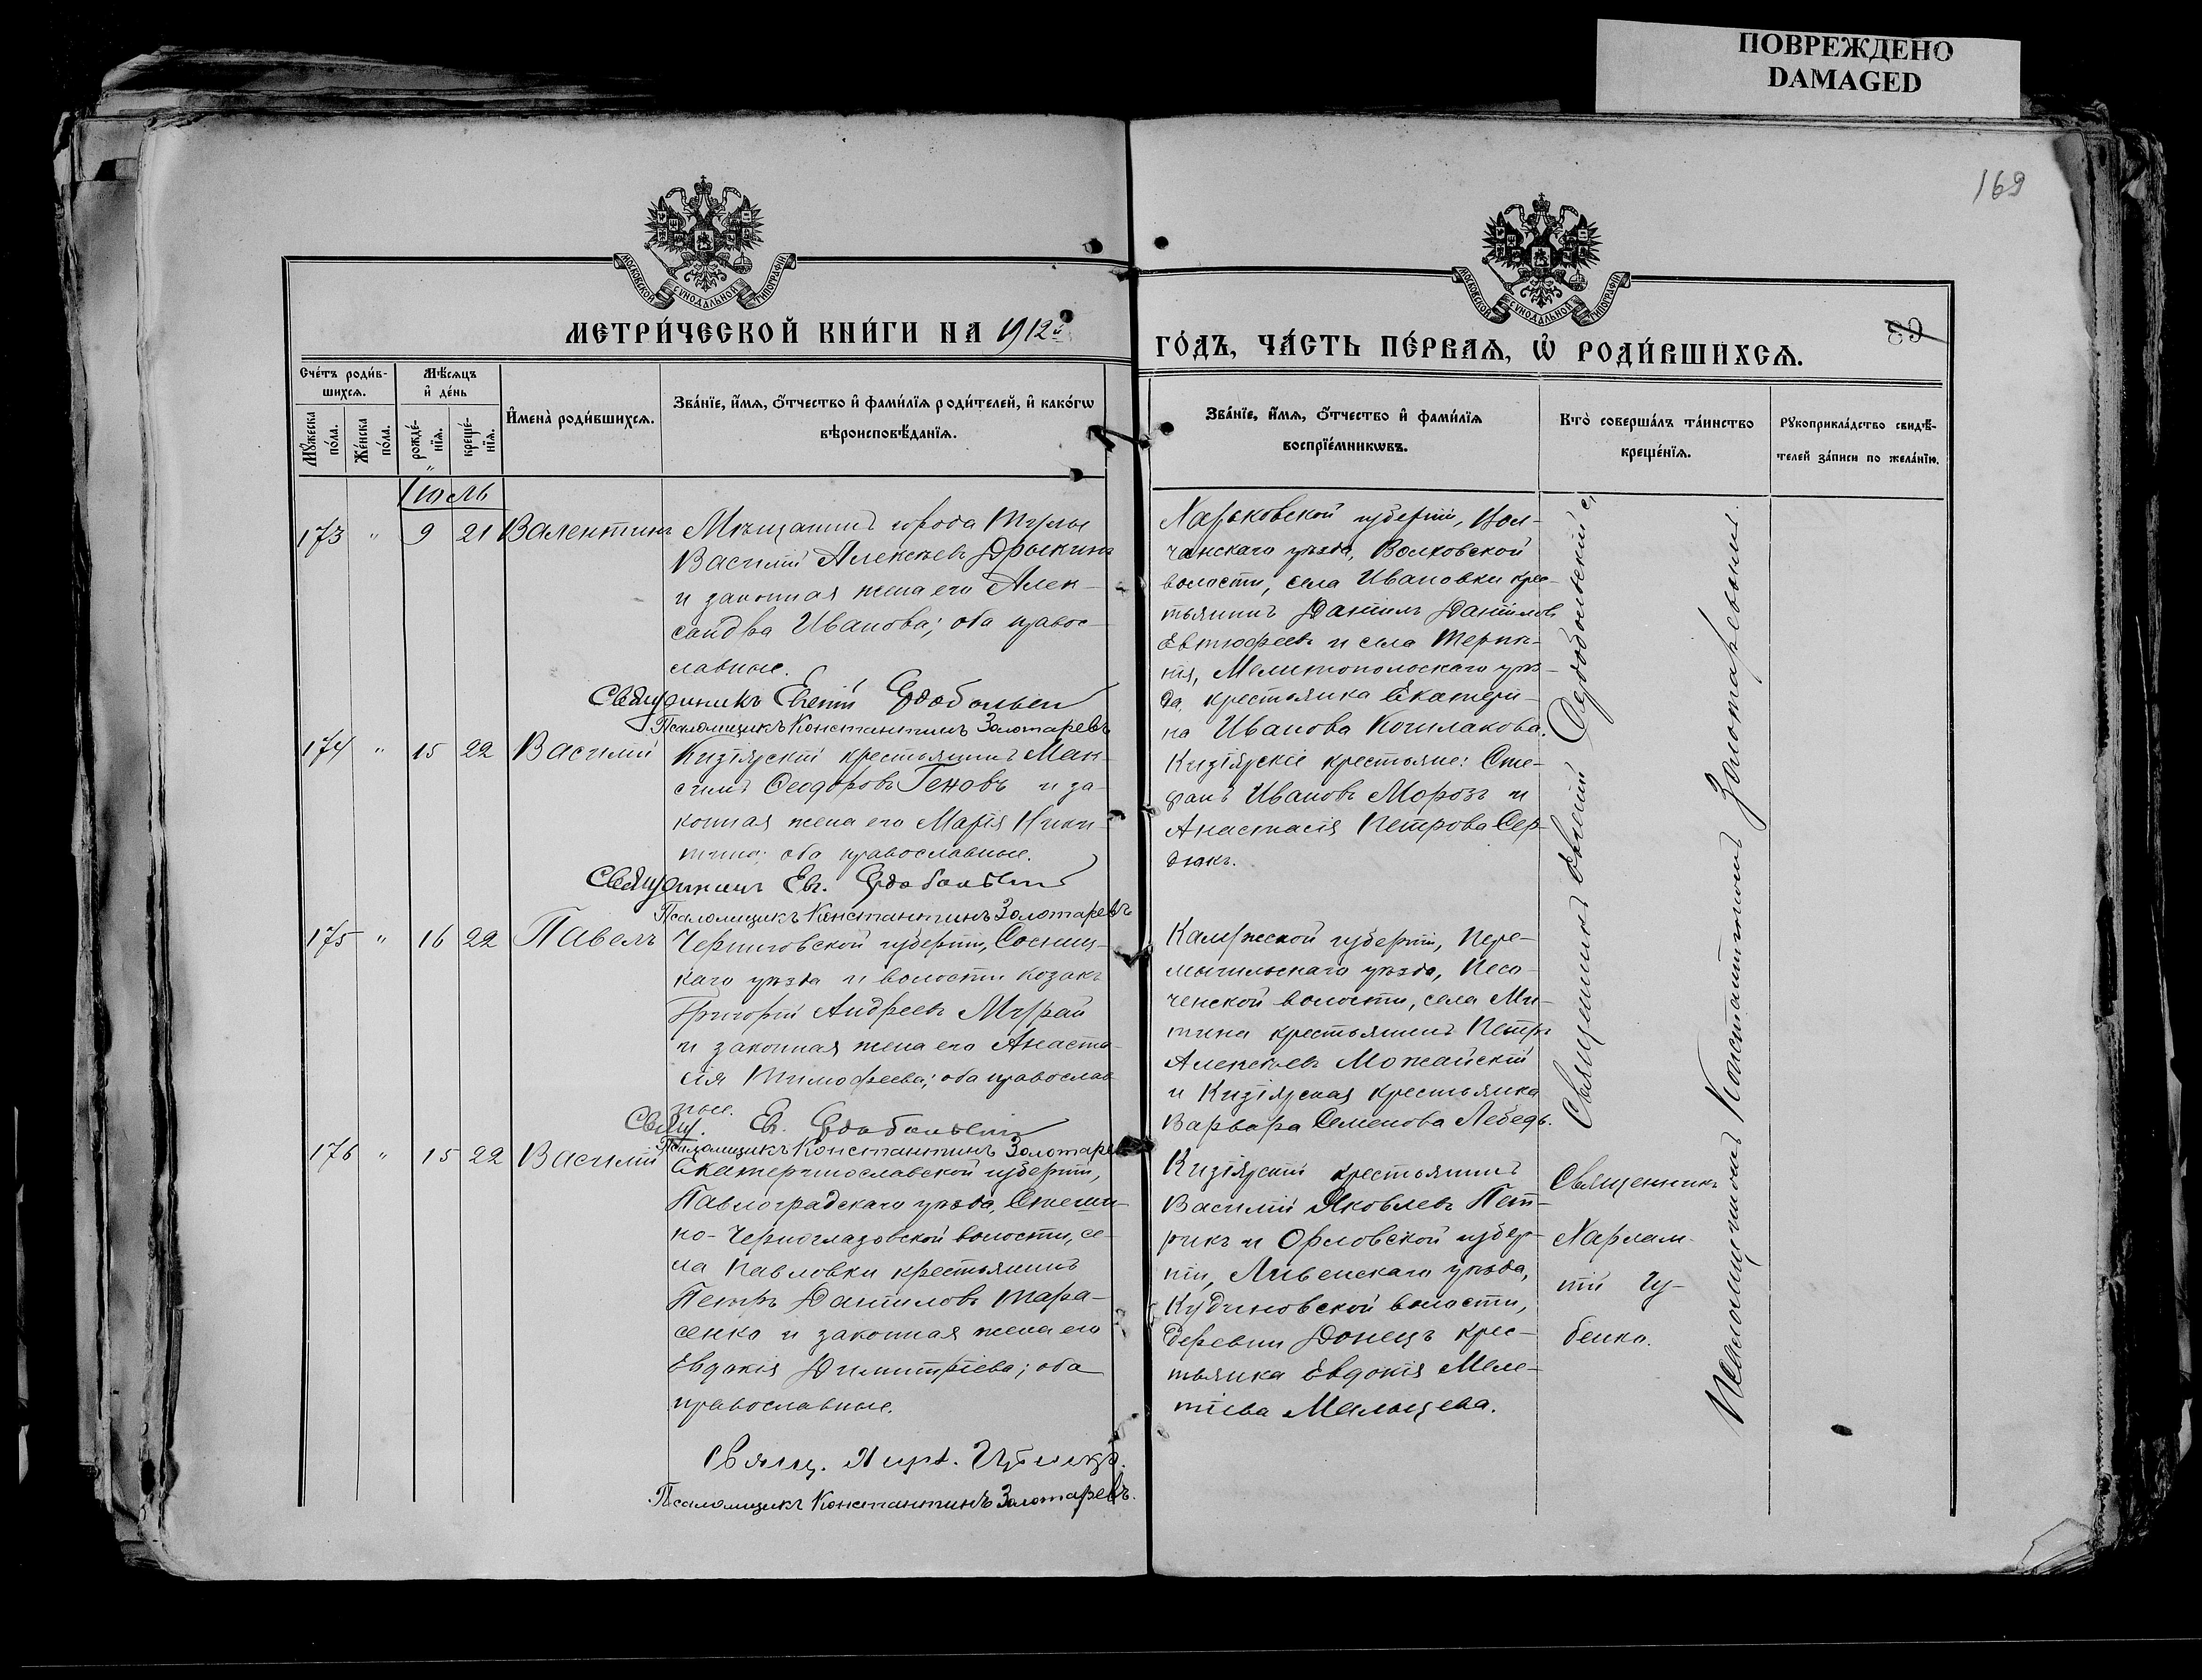 ПОВРЕЖДЕНО
DAMAGED
169
МОСКОВСКОЙ СѴНОДАЛЬНОЙ ТИПОГРАФІИ
МОСКОВСКОЙ СѴНОДАЛЬНОЙ ТИПОГРАФІИ
МЕТРИ́ЧЕСКОЙ КНИ́ГИ НА 1912й
ГО́ДЪ, ЧА́СТЬ ПЕ́РВАѦ, Ѽ РОДИ́ВШИХСѦ.
Сче́тъ роди́в-
шихсѧ.
Мꙋ́жеска по́ла.
Же́нска по́ла.
Мѣ́сѧцъ
и҆ де́нь
рожде́-
нїѧ.
креще́-
нїѧ.
И҆мена̀ роди́вшихсѧ.
Зва́нїе, и҆́мѧ, ѻ҆́тчество и҆ фами́лїѧ роди́телей, и҆ како́гѡ
вѣроисповѣ́данїѧ.
Зва́нїе, и҆́мѧ, ѻ҆́тчество и҆ фами́лїѧ
воспрїе́мникѡвъ.
Кто̀ соверша́лъ та́инство
креще́нїѧ.
Рꙋкоприкла́дство свидѣ́-
телей за́писи по жела́нїю.
Іюль
173 " 9 21 Валентинъ
Мѣщанинъ города
Василій Алексѣевъ Дрыкинъ
и законная жена его Алек-
сандра Иванова; оба правос-
лавные.
Священникъ Евгеній
Псаломщикъ Константинъ Золотаревъ
Харьковской губерніи, Вол-
чанскаго уѣзда, Волховской
волости, села Ивановки крес-
тьянинъ Даніилъ Даниловъ
Евтюфеевъ и села Терпѣ-
нія, Мелитопольскаго уѣз-
да, крестьянка Екатери-
на Иванова Кошлакова.
174 " 15 22 Василій
Кизіярскій крестьянинъ Мак-
симъ Ѳеодоровъ Геновъ и за-
конная жена его Марія Ники-
тина; оба православные.
Священникъ Ев.
Псаломщикъ Константинъ Золотаревъ
Кизіярскіе крестьяне: Сте-
фанъ Ивановъ Морозъ и
Анастасія Петрова Сер-
дюкъ.
175 " 16 22 Павелъ
Черниговской губерніи, Сосниц-
каго уѣзда и волости козакъ
Григорій Андреевъ Мурай
и законная жена его Анаста-
сія Тимофеева; оба православ-
ные.
Свящ. Ев.
Псаломщикъ Константинъ Золотаревъ
Калужской губерніи, Пере-
мышльскаго уѣзда, Песо-
ченской волости, села Ми-
тина крестьянинъ Петръ
Алексѣевъ Можайскій
и Кизіярская крестьянка
Варвара Семенова Лебедь.
Священникъ Евгеній
Псаломщикомъ Константиномъ Золотаревымъ.
176 " 15 22 Василій
Екатеринославской губерніи,
Павлоградскаго уѣзда,
но-Черноглазовской волости, се-
ла Павловки крестьянинъ
Петръ Даниловъ Тара-
сенко и законная жена его
Евдокія Димитріева; оба
православные.
Свящ. Харл. Губенко.
Псаломщикъ Константинъ Золотаревъ.
Кизіярскій крестьянинъ
Василій Яковлевъ Пет-
рикъ и Орловской губер-
ніи, Ливенскаго уѣзда,
Кудиновской волости,
деревни Донецъ крес-
тьянка Евдокія Меле-
тіева Мальцева.
Священникъ
Харлам-
пій Гу-
бенко.